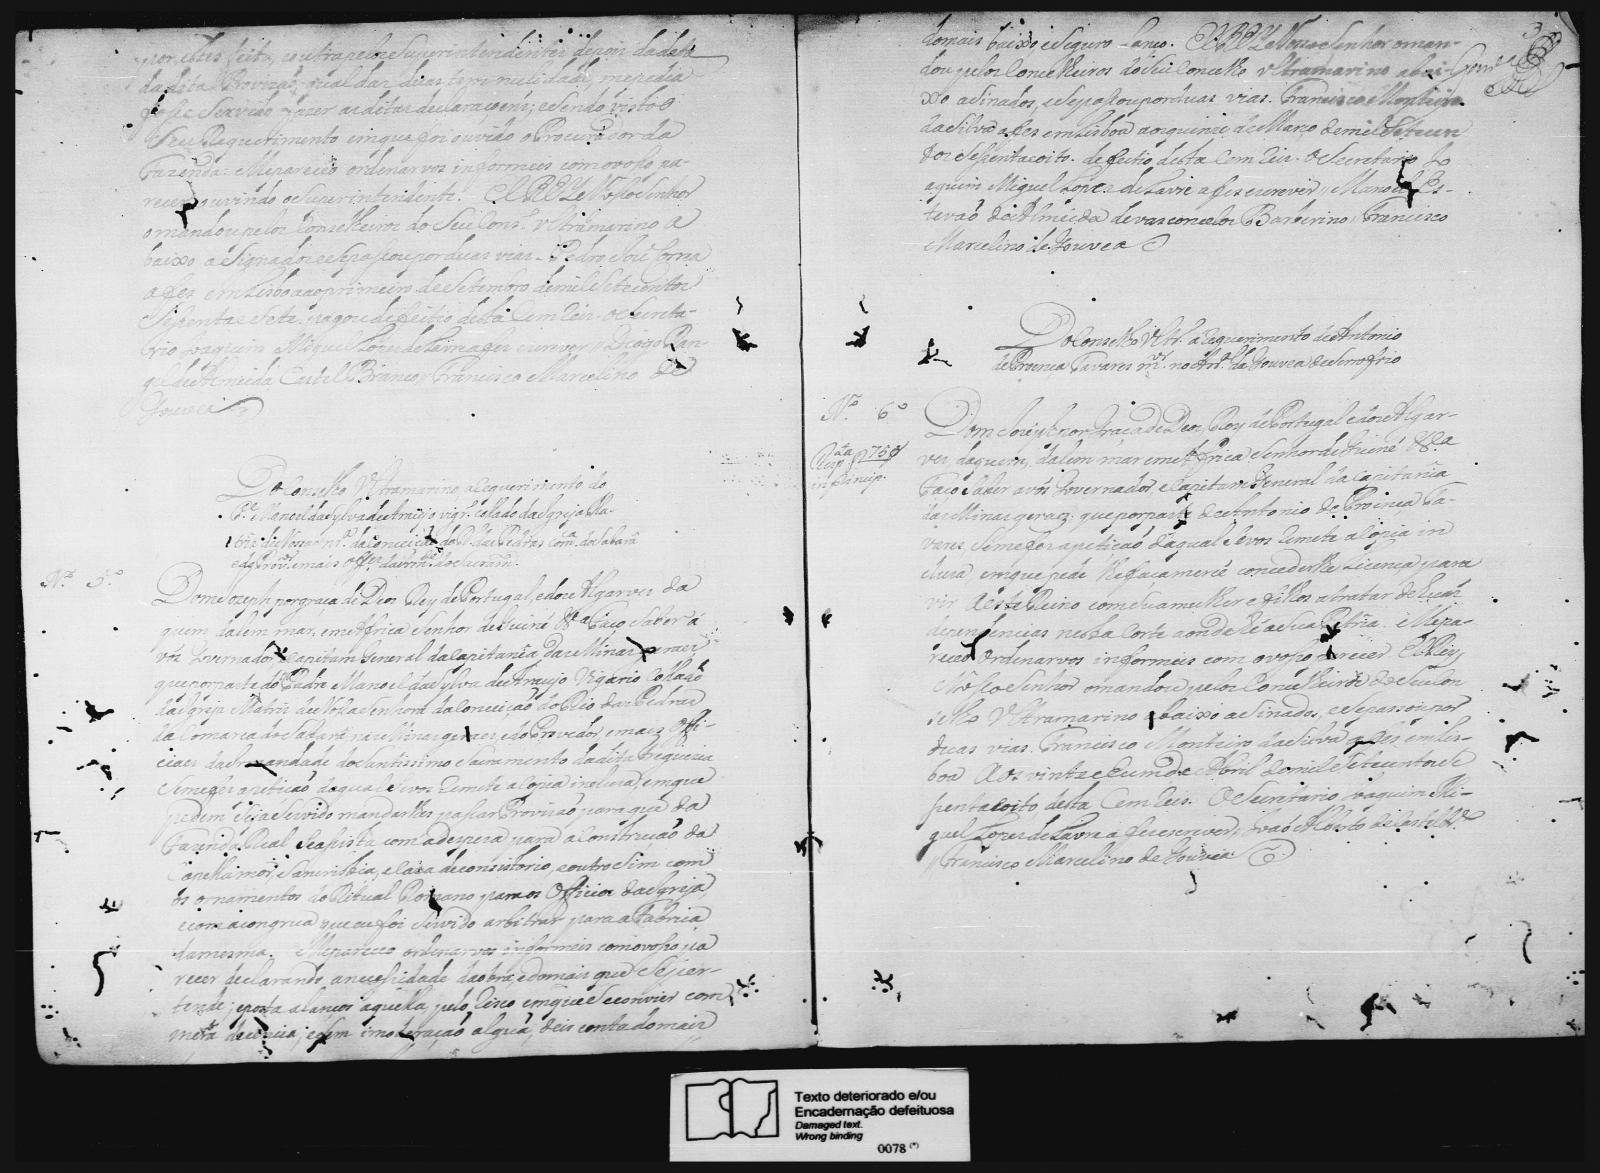 por estes feita, e outra pelos Superintendentes depois da data
da dita Provizaõ,
fosse Servido fazer as ditas declaraçoens; e sendo visto o
Seu Requerimento em que foi ouvido o Procurador da
Fazenda: Me pareceo ordenarvos informeis com vosso pa-
recer ouvindo o Superintendente. El REY Nosso Senhor
o mandou pelos Conselheiros do Seu Cons.º Ultramarino a
baixo aSignados e Se passou por duas vias. Pedro José Correa
a fes em Lisboa ao primeiro de Setembro de mil Setecentos
Sesenta e Sete. pagou de feitio desta Cem Reis. o Secreta-
rio Joaquim Miguel Lopes de Lavre a fes escrever // Diogo Ran-
gel de Almeida Castel Branco, Francisco Marcelino de
Gouvea
Do Conselho Ultramarino, a Requerimento do
P.e Manoel da Sylva de Araujo vigr.º colado da Igreja Ma-
triz de Nossa Snr.ª da Conceiçaõ do R.º das Pedras Com.ca do Sabará
e do Prov.or e mais off.es da Irm.de do Sacram.to
N.º 5.º
Dom Joseph por graça de Deos Rey de Portugal, e dos Algarves da
quem, dalem mar, em Affrica Senhor de Guiné &.ª Faço Saber a
vós Governador, e Capitam General da Capitania das Minas geraes
que por parte do Padre Manoel da Sylva de Araujo Vigario Collado
da Igreja Matris de Nossa Senhora da Conceiçaõ do Rio das Pedras
da Comarca do Sabará nas Minas geraes, e do Provedor, e mais Offi-
ciaes da Irmandade do Santissimo Sacramento da dita Freguezia
Se me fez a petiçaõ da qual Se vos Remete a copia incluza, em que
pedem Seja Servido mandarlhes passar Provizaõ para que da
Fazenda Real Se assista com a despeza para a Construçaõ da
Capella mór, Sancristia, e Caza de consistorio, e outro Sim com
os ornamentos do Ritual Romano para os Officios da Igreja
e com a congrua que eu foi Servido arbitrar para a Fabrica
da mesma. Me pareceo ordenarvos informeis com vosso pa
recer declarando a necessidade da obra, e do mais que Se per-
tende; posta a lanços aquella, pelo Risco em que Se convier com
mera decencia, e Sem imoderaçaõ algua, deis conta do mais
3
do mais baixo e Seguro lanço. El REY Nosso Senhor o man-
dou pelos Conselheiros do Seu Conselho Ultramarino abai-
xo aSinados, e Se passou por duas vias. Francisco Monteiro
da Silva a fes em Lisboa aos quinze de Março de mil Setecen
tos Sesenta e oito. de feitio desta Cem Reis. o Secretario Jo
aquim Miguel Lopes de Lavre a fes escrever // Manoel Es-
tevaõ de Almeida de vasconcelos Barberino, Francisco
Marcelino de Gouvea
Do Conselho Ultr. a Requerimento de Antonio
de Proença Tavares m.or no Arr.al da Gouvea do Serro frio
N.º 6.º
Dom Joseph por Graça de Deos Rey de Portugal e dos Algar-
ves, daquem, dalem mar em Affrica Senhor de Guiné &.ª
Faço Saber a vós Governador, e Capitam General da Capitania
das Minas geraes: que por parte de Antonio de Proença Ta-
vares, Se me fez a petiçaõ da qual Se vos Remete a copia in
cluza, em que pede lhe faça mercê concederlhe Licença para
vir a este Reino com Sua mulher e filhos a tratar de Suas
dependencias nesta Corte aonde he a Sua Patria. Me pa-
receo ordenarvos informeis com o vosso parecer El Rey
Nosso Senhor o mandou pelos Conselheiros do Seu Con
selho Ultramarino abaixo aSinados, e Se passou por
duas vias. Francisco Monteiro da Silva a fes em Lis-
boa aos vinte e hum de Abril de mil Setecentos Se
senta e oito desta Cem Reis. O Secretario Joaquim Mi-
guel Lopes de Lavre a fes escrever //
// Francisco Marcelino de Gouvea
Texto deteriorado e/ou
Encadernação defeituosa
Damaged text.
Wrong binding
0078 (*)